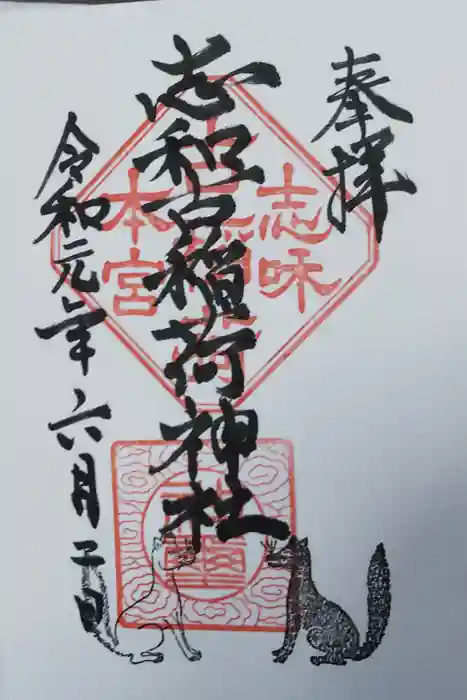 奉拝
志和古稲荷神社
令和元年六月二日
志味
本宮